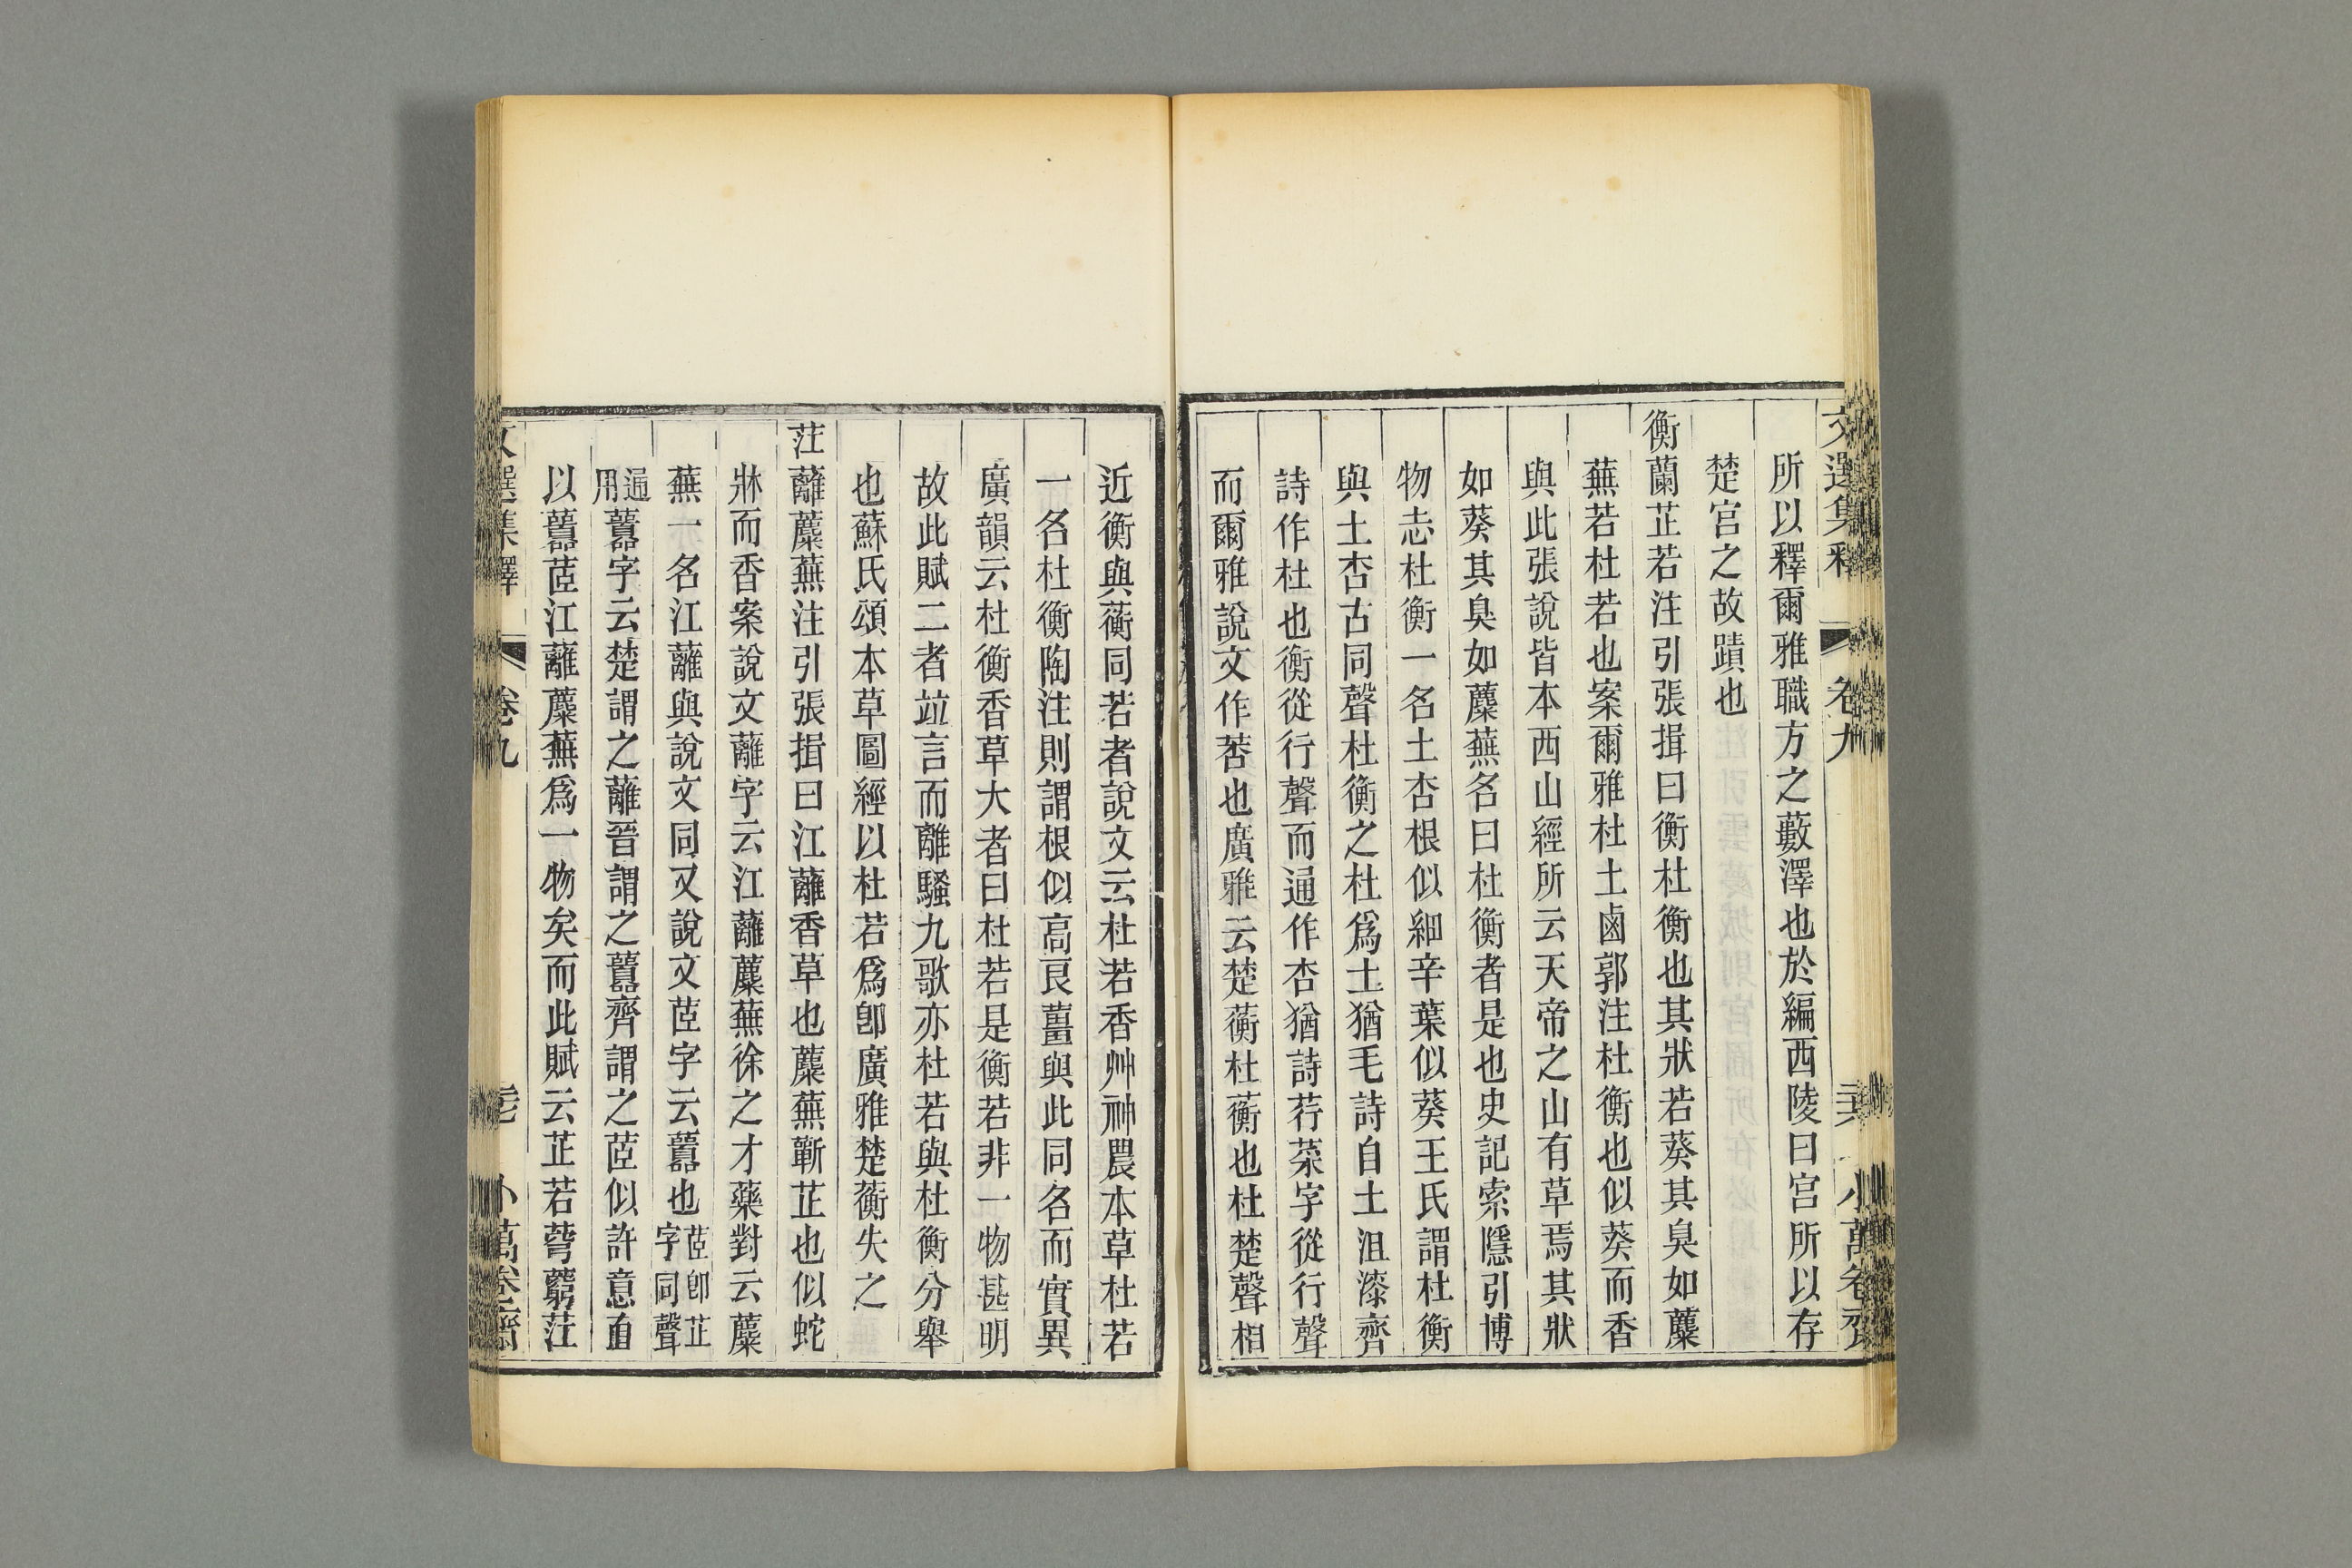 文選集釋 卷九 小萬卷齋
所以釋爾雅職方之藪澤也於編西陵曰宮所以存
楚宮之故蹟也
衡蘭芷若注引張揖曰衡杜衡也其狀若葵其臭如蘪
蕪若杜若也案爾雅杜土鹵郭注杜衡也似葵而香
與此張說皆本西山經所云天帝之山有草焉其狀
如葵其臭如蘪蕪名曰杜衡者是也史記索隱引博
物志杜衡一名土杏根似細辛葉似葵王氏謂杜衡
與土杏古同聲杜衡之杜爲土猶毛詩自土沮漆齊
詩作杜也衡從行聲而通作杏猶詩荇菜字從行聲
而爾雅說文作莕也廣雅云楚蘅杜蘅也杜楚聲相
近衡與蘅同若者說文云杜若香艸神農本草杜若
一名杜衡陶注則謂根似高良薑與此同名而實異
廣韻云杜衡香草大者曰杜若是衡若非一物甚明
故此賦二者竝言而離騷九歌亦杜若與杜衡分舉
也蘇氏頌本草圖經以杜若爲卽廣雅楚蘅失之
茳蘺蘪蕪注引張揖曰江蘺香草也蘪蕪蘄芷也似蛇
牀而香案說文蘺字云江蘺蘪蕪徐之才藥對云蘪
蕪一名江蘺與說文同又說文茝字云虈也茝卽芷字同聲
通用虈字云楚謂之蘺晉謂之虈齊謂之茝似許意直
以虈茝江蘺蘪蕪爲一物矣而此賦云芷若藭茳
文選集釋 卷九 小萬卷齋